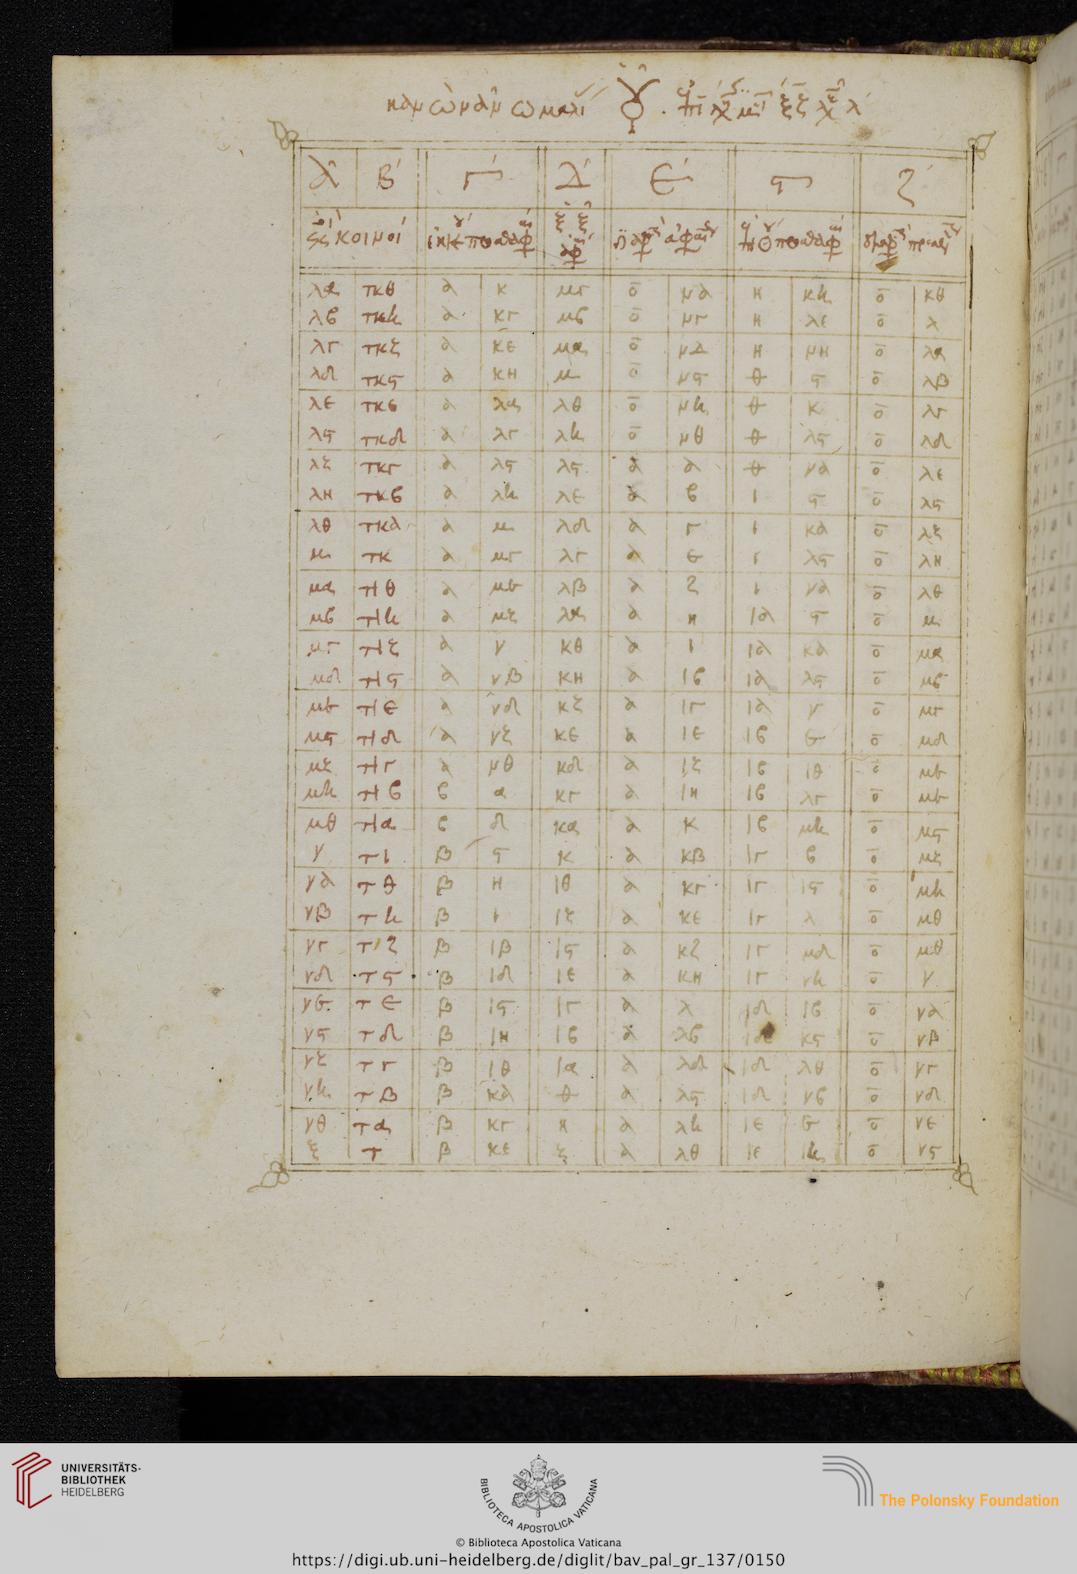 Α Β Γ Δ Ε Ϛ Ζ
λα τκθ α κ μγ ο μα η κη ο κθ
λβ τκη α κγ μβ ο μγ η λε ο λ
λγ τκζ α κε μα ο μδ η μη ο λα
λδ τκϛ α κη μ ο μϛ θ ϛ ο λβ
λε τκε α λα λθ ο μη θ κ ο λγ
λϛ τκδ α λγ λη ο μθ θ λϛ ο λδ
λζ τκγ α λϛ λϛ α α θ να ο λε
λη τκβ α λη λε α β ι ϛ ο λϛ
λθ τκα α μ λδ α γ ι κα ο λζ
μ τκ α μγ λγ α ε ι λϛ ο λη
μα τιθ α με λβ α ζ ι να ο λθ
μβ τιη α μζ λα α η ια ϛ ο μ
μγ τιζ α ν κθ α ι ια κα ο μα
μδ τιϛ α νβ κη α ιβ ια λϛ ο μβ
με τιε α νδ κζ α ιγ ια ν ο μγ
μϛ τιδ α νζ κε α ιε ιβ ε ο μδ
μζ τιγ α μθ κδ α ιζ ιβ ιθ ο με
μη τιβ β α κγ α ιη ιβ λγ ο με
μθ τια β δ κα α κ ιβ μη ο μϛ
ν τι β ϛ κ α κβ ιγ β ο μζ
να τθ β η ιθ α κγ ιγ ιϛ ο μη
νβ τη β ι ιζ α κε ιγ λ ο μθ
νγ τζ β ιβ ιϛ α κζ ιγ μδ ο μθ
νδ τϛ β ιδ ιε α κη ιγ νη ο ν
νε τε β ιϛ ιγ α λ ιδ ιβ ο να
νϛ τδ β ιη ιβ α λβ ιδ κϛ ο νβ
νζ τγ β ιθ ια α λδ ιδ λθ ο νγ
νη τβ β κα θ α λϛ ιδ νβ ο νδ
νθ τα β κγ η α λη ιε ε ο νε
ξ τ β κε ζ α λθ ιε ιη ο νϛ
UNIVERSITÄTS-
BIBLIOTHEK
HEIDELBERG
BIBLIOTECA APOSTOLICA VATICANA
The Polonsky Foundation
© Biblioteca Apostolica Vaticana
https://digi.ub.uni-heidelberg.de/diglit/bav_pal_gr_137/0150